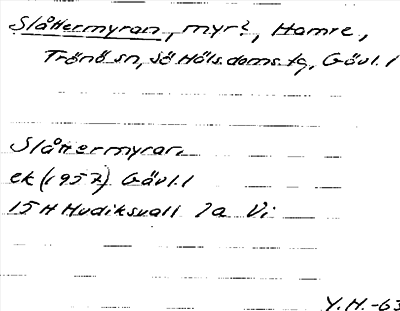 Slåttermyran, myr?, Hamre,
Trönö sn, Sö Häls. doms. tg, Gävl. l
Slåttermyran
ek (1957) Gävl. l
15 H Hudiksvall 7a Vi
Y.H.-63